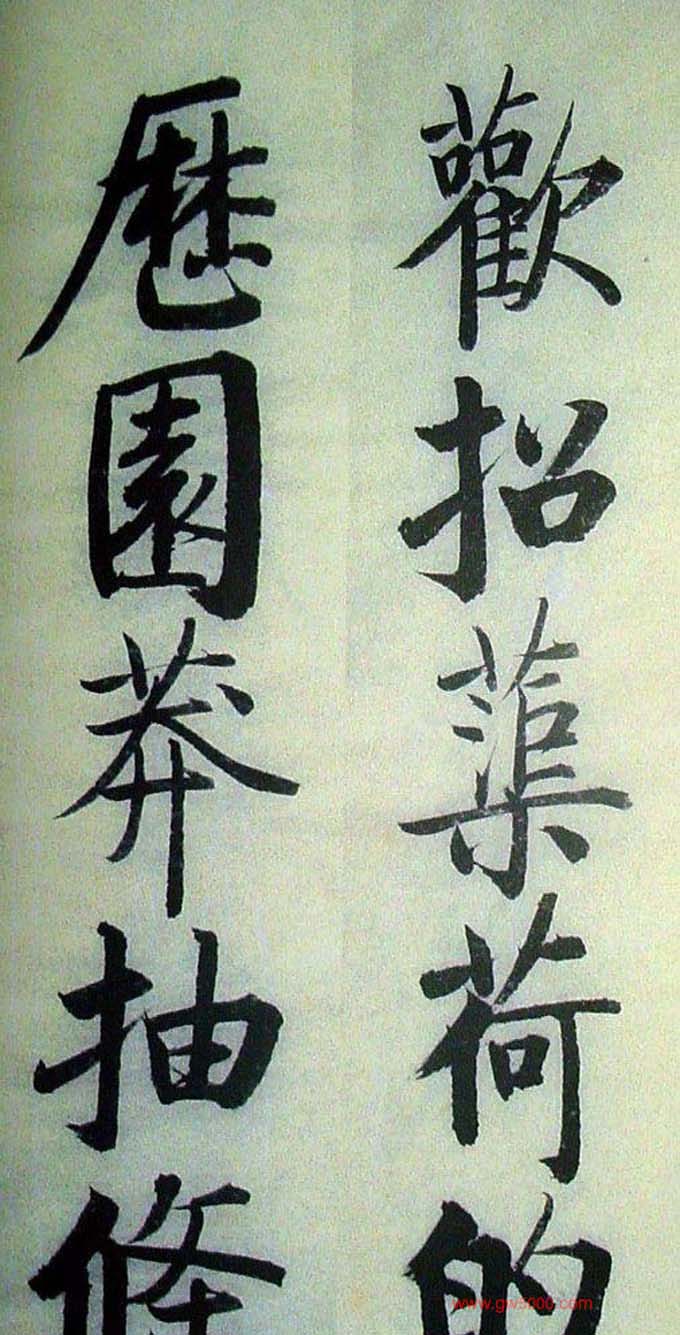 歡招蕖荷的
歷園莽抽條
www.gw5000.com